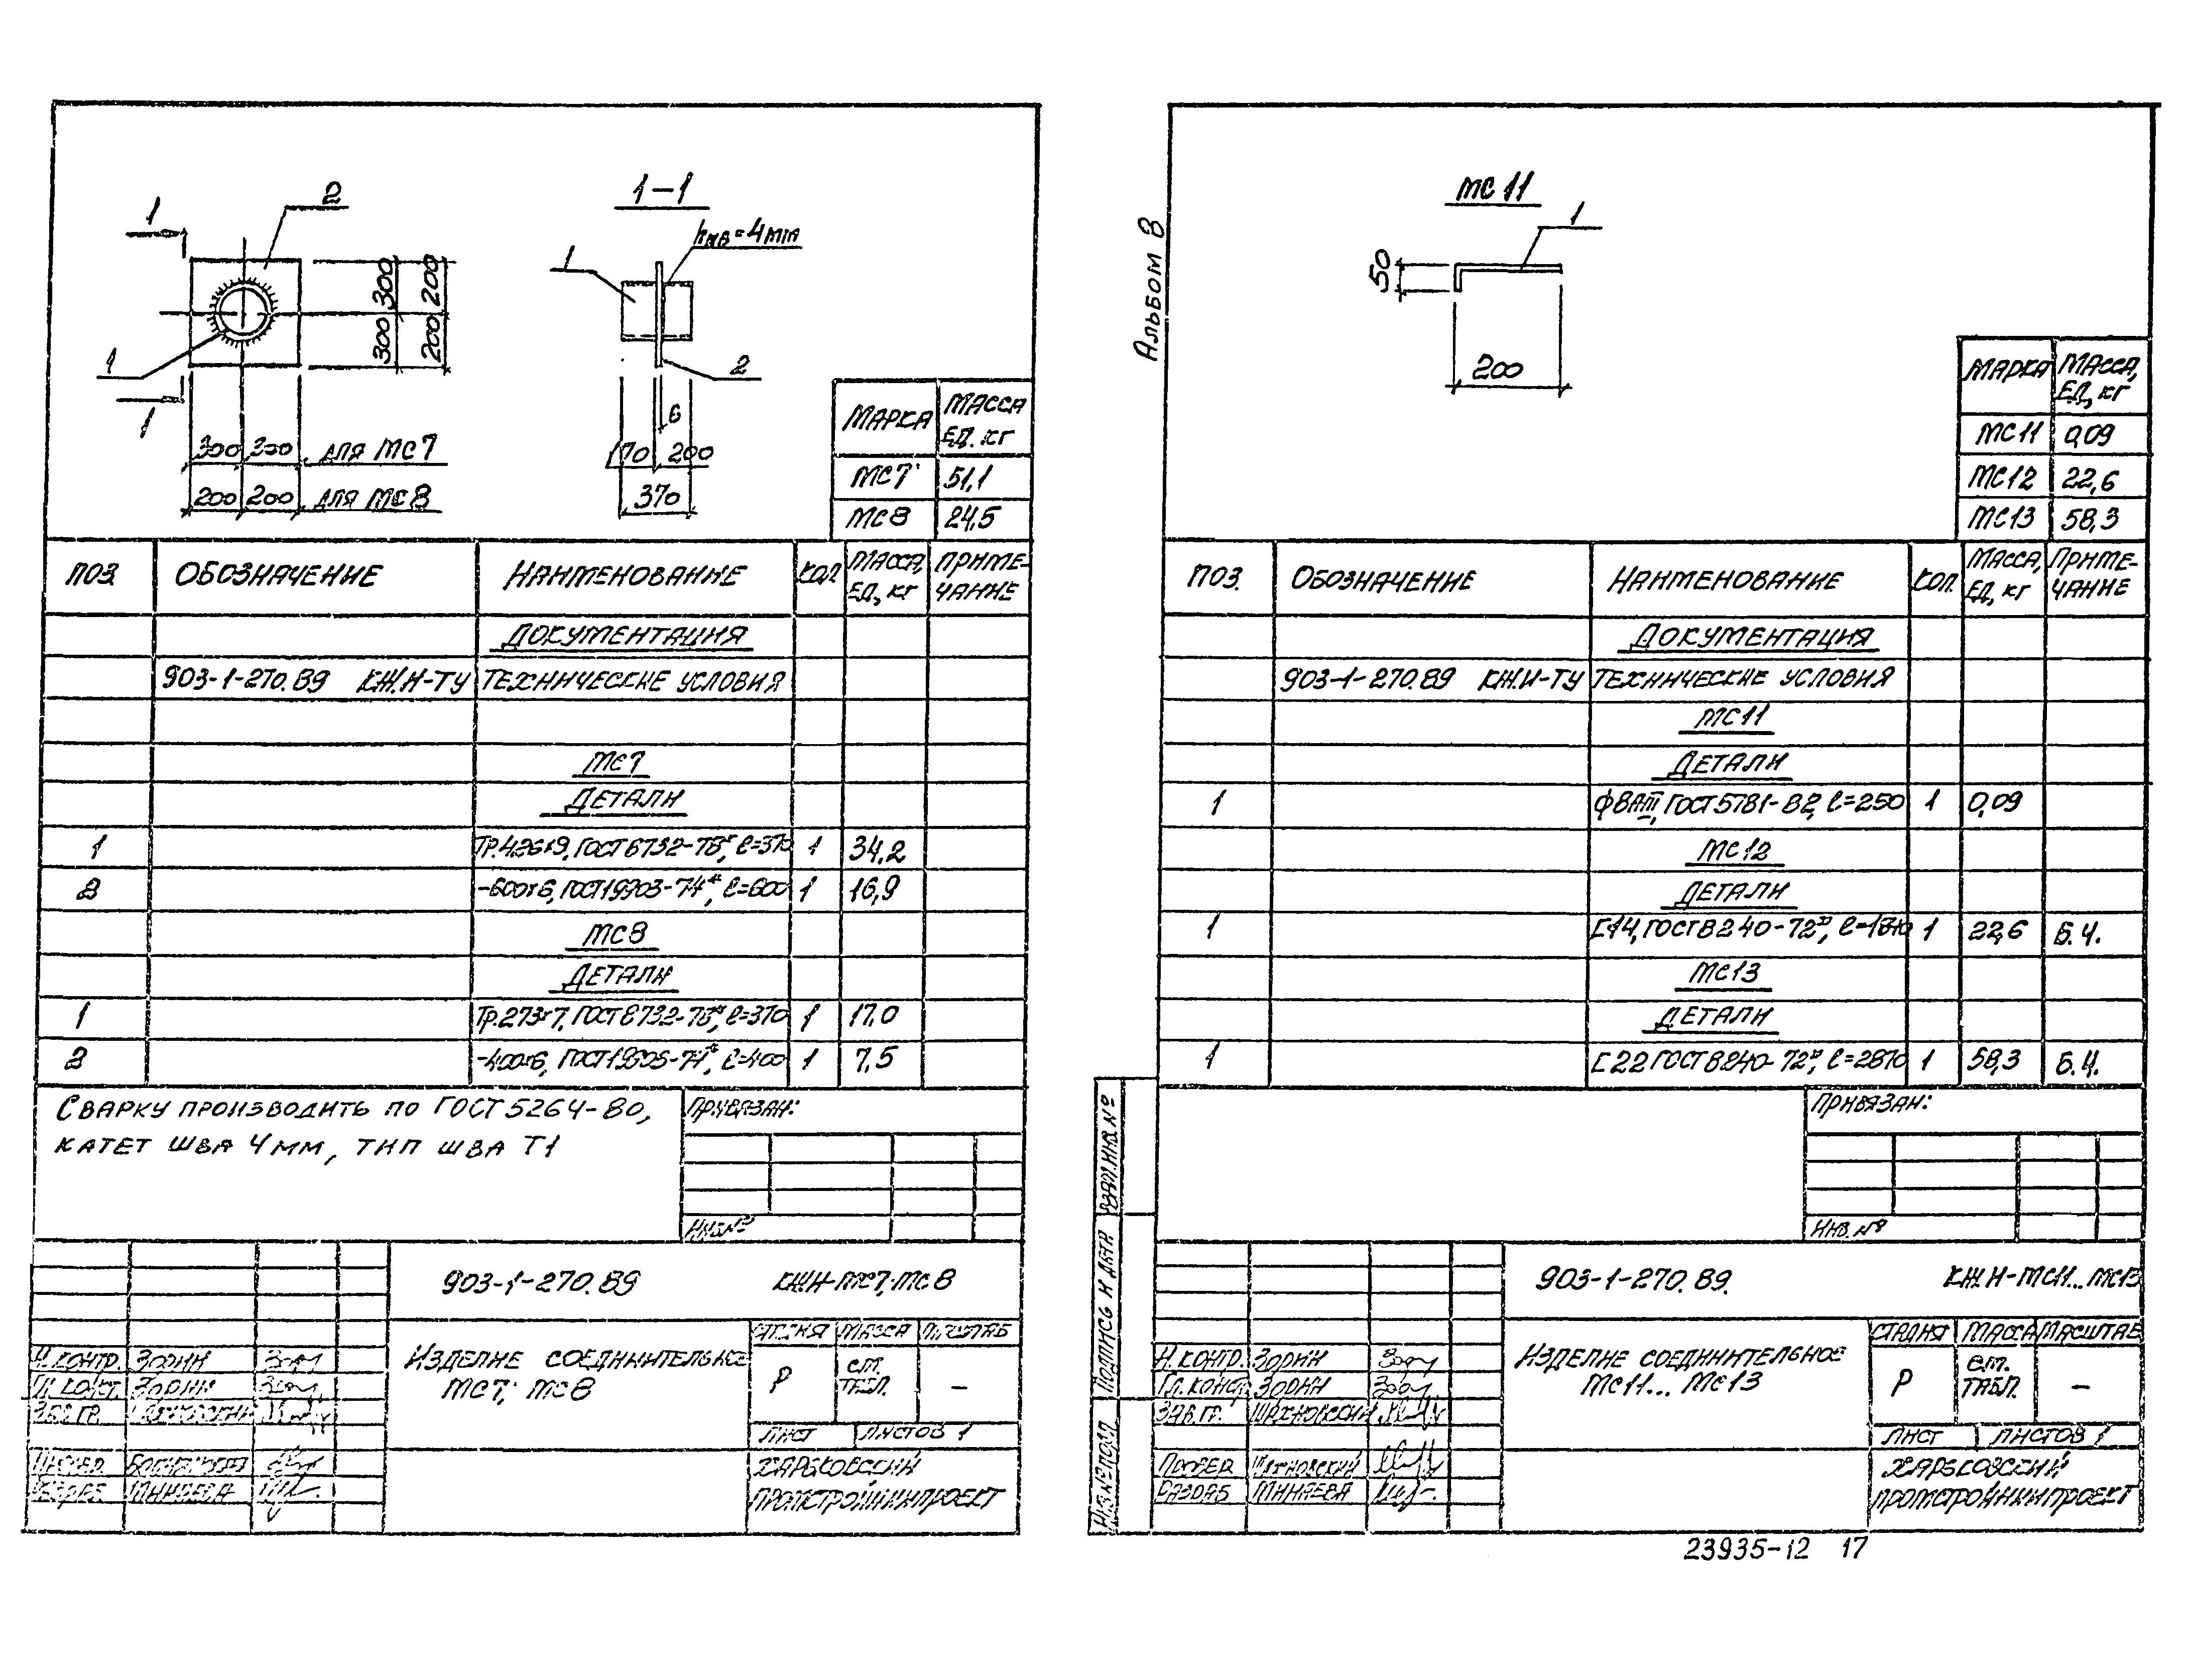 1
2
1
1
300
300
200
200
300 300 ДЛЯ МС7
200 200 ДЛЯ МС8
1-1
hшв=4мм
1
2
6
170 200
370
МАРКА МАССА ЕД. КГ
МС7 51,1
МС8 24,5
ПОЗ. ОБОЗНАЧЕНИЕ НАИМЕНОВАНИЕ КОЛ. МАССА, ЕД., КГ ПРИМЕ-ЧАНИЕ
ДОКУМЕНТАЦИЯ
903-1-270.89 КЖ.И-ТУ ТЕХНИЧЕСКИЕ УСЛОВИЯ
МС7
ДЕТАЛИ
1 Тр.426х9, ГОСТ 8732-78*, ℓ=370 1 34,2
2 -600х6, ГОСТ 19903-74*, ℓ=600 1 16,9
МС8
ДЕТАЛИ
1 Тр.273х7, ГОСТ 8732-78*, ℓ=370 1 17,0
2 -400х6, ГОСТ 19903-74*, ℓ=400 1 7,5
СВАРКУ ПРОИЗВОДИТЬ ПО ГОСТ 5264-80,
КАТЕТ ШВА 4ММ, ТИП ШВА Т1
ПРИВЯЗАН:
ИНВ.№
903-1-270.89 КЖ.И-МС7; МС8
ИЗДЕЛИЕ СОЕДИНИТЕЛЬНОЕ
МС7; МС8
СТАДИЯ МАССА МАСШТАБ
Р СМ. ТАБЛ. –
ЛИСТ ЛИСТОВ 1
Н.КОНТР. ЗОРИН
ГЛ.КОНСТ. ЗОРИН
ЗАВ.ГР.
МИНАЕВА
ХАРЬКОВСКИЙ
ПРОМСТРОЙНИИПРОЕКТ
Альбом 8
МС11
1
50
200
МАРКА МАССА, ЕД., КГ
МС11 0,09
МС12 22,6
МС13 58,3
ПОЗ. ОБОЗНАЧЕНИЕ НАИМЕНОВАНИЕ КОЛ. МАССА, ЕД., КГ ПРИМЕ-ЧАНИЕ
ДОКУМЕНТАЦИЯ
903-1-270.89 КЖ.И-ТУ ТЕХНИЧЕСКИЕ УСЛОВИЯ
МС11
ДЕТАЛИ
1 ф8АIII, ГОСТ 5781-82, ℓ=250 1 0,09
МС12
ДЕТАЛИ
1 [14, ГОСТ 8240-72*, 1 22,6 Б.Ч.
МС13
ДЕТАЛИ
1 [22 ГОСТ 8240-72*, ℓ=2870 1 58,3 Б.Ч.
ПРИВЯЗАН:
ИНВ.№
ВЗАМ.ИНВ.№
ПОДПИСЬ И ДАТА
ИНВ.№ПОДЛ
903-1-270.89. КЖ.И-МС11...МС13
ИЗДЕЛИЕ СОЕДИНИТЕЛЬНОЕ
МС11... МС13
СТАДИЯ МАССА МАСШТАБ
Р СМ. ТАБЛ. –
ЛИСТ ЛИСТОВ 1
Н.КОНТР. ЗОРИН
ГЛ.КОНСТ. ЗОРИН
ЗАВ.ГР. ШАХНОВСКИЙ
ПРОВЕР. ШАХНОВСКИЙ
РАЗРАБ. МИНАЕВА
ХАРЬКОВСКИЙ
ПРОМСТРОЙНИИПРОЕКТ
23935-12 17